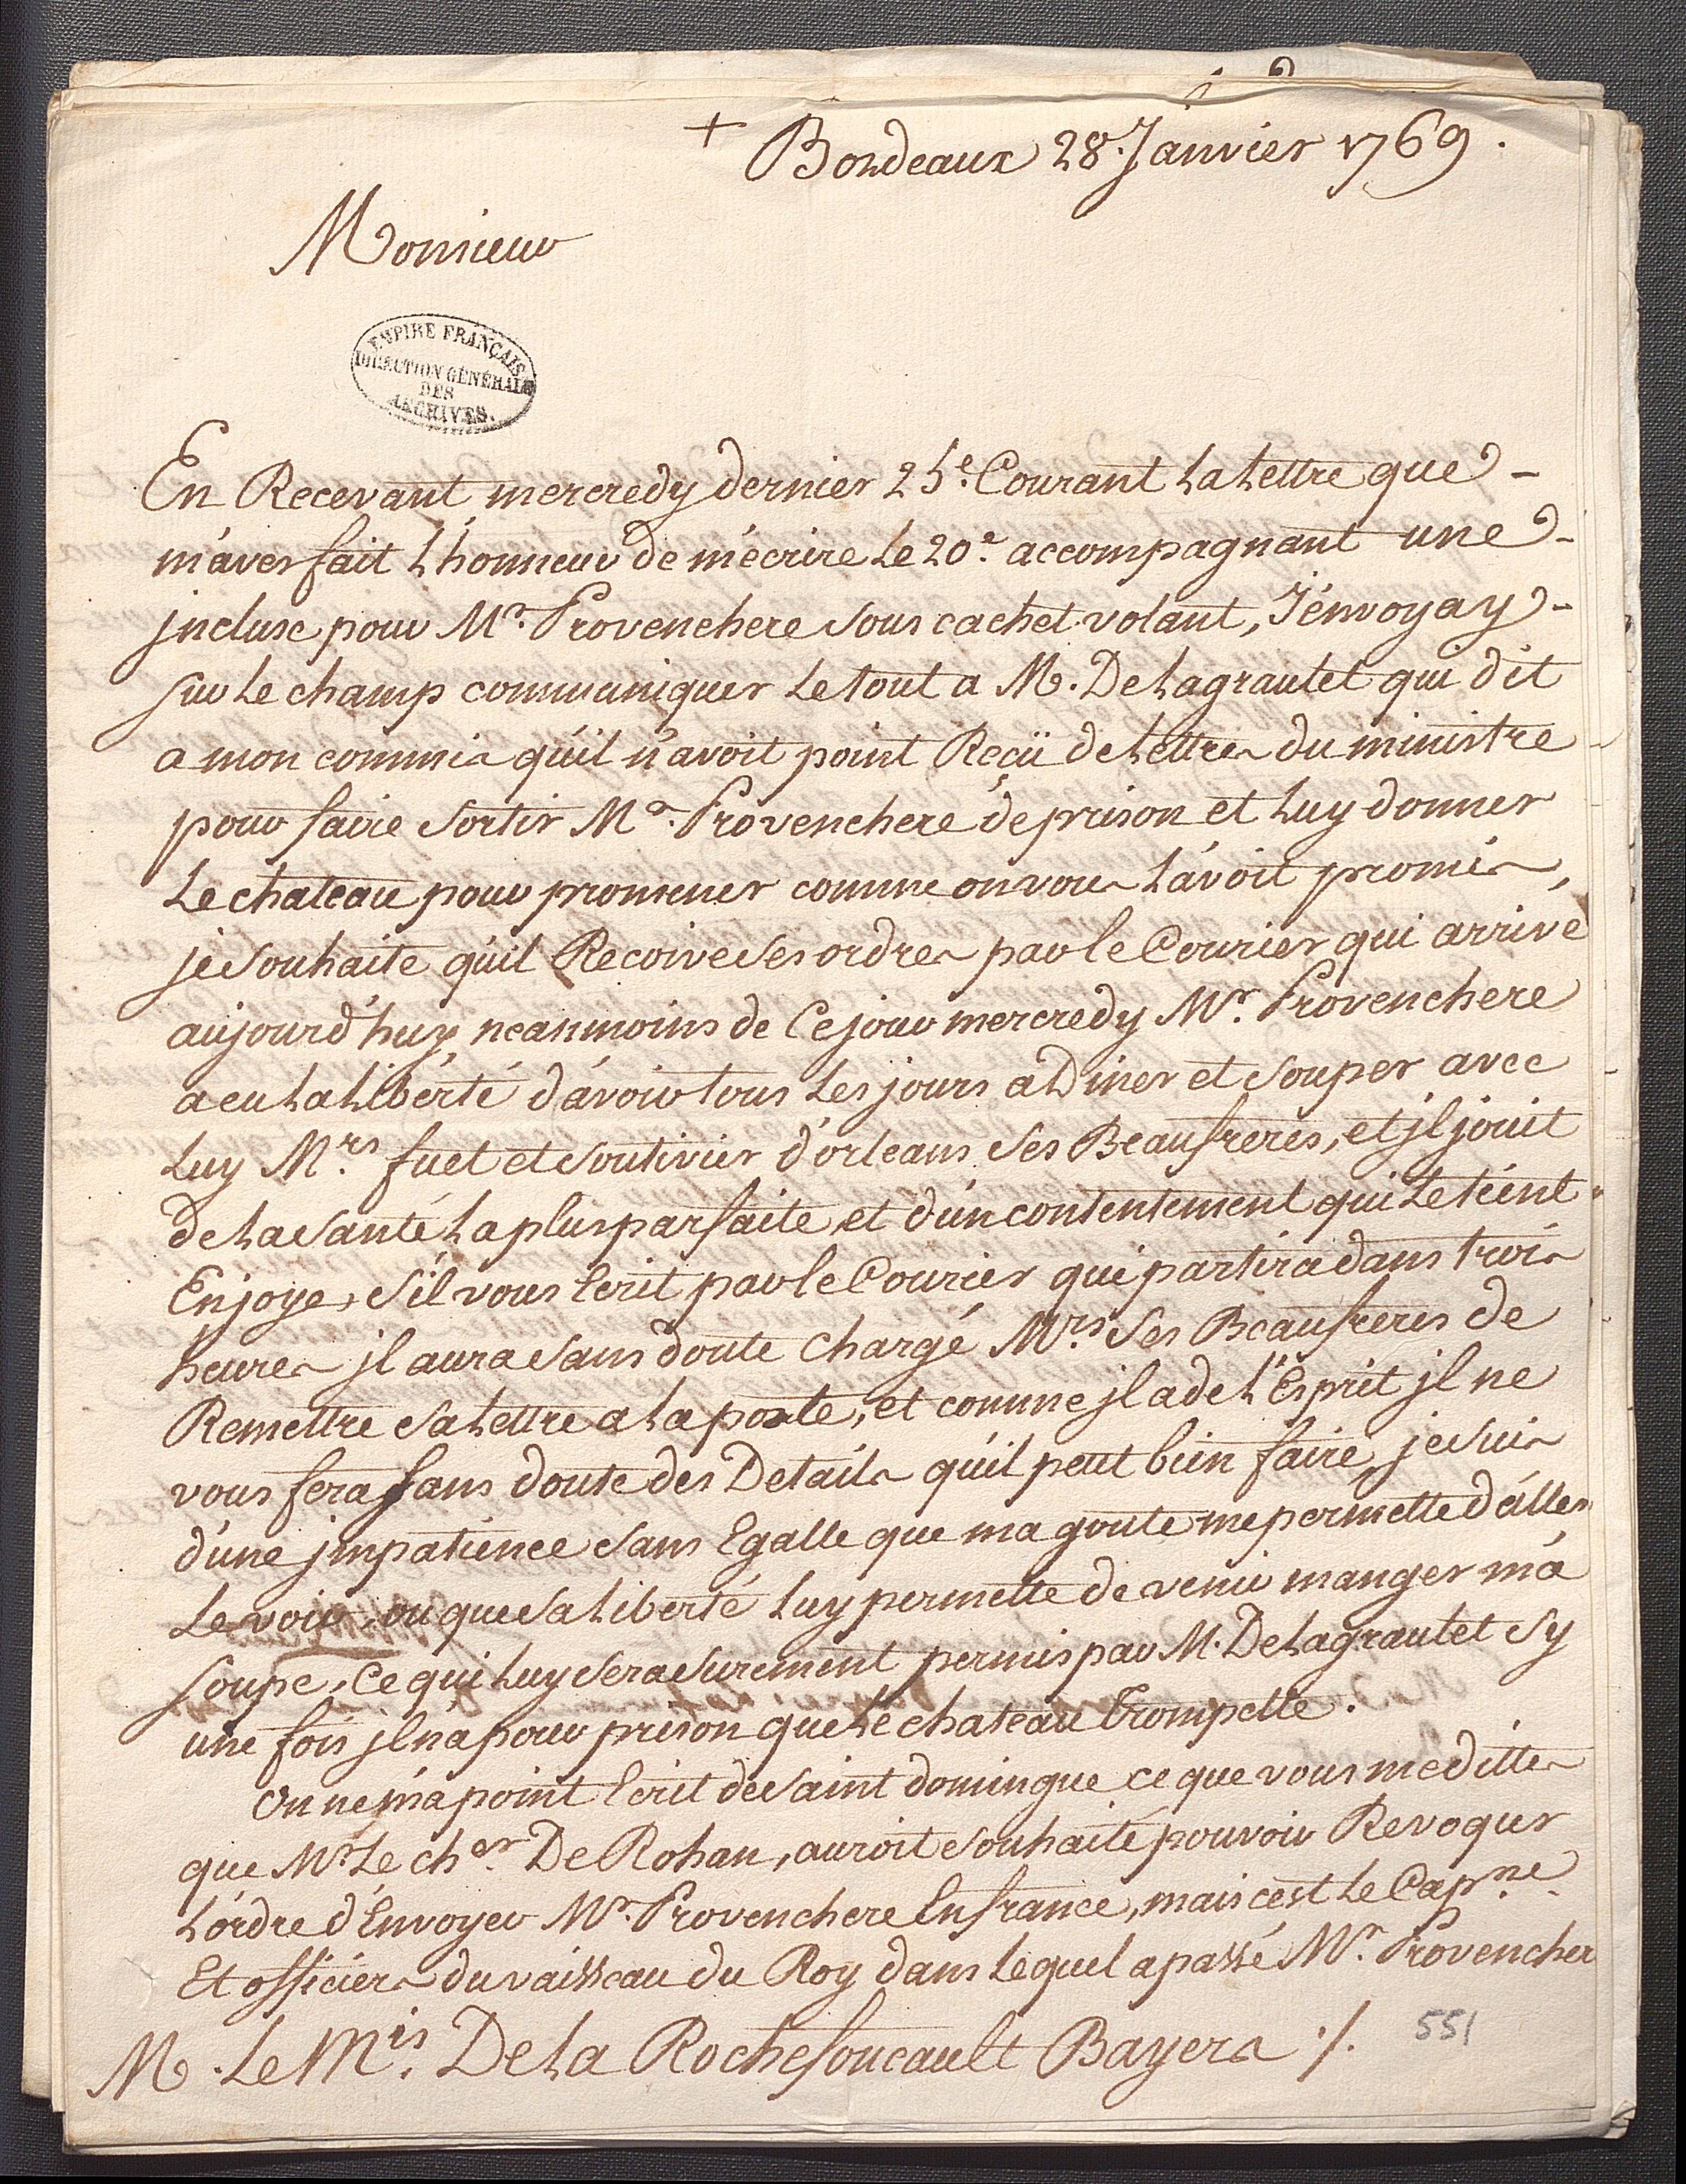 + Bordeaux 28. Janvier 1769.
Monsieur
EMPIRE FRANÇAIS
DIRECTION GÉNÉRALE
DES
ARCHIVES.
En Recevant mercredy dernier 25e. Courant La Lettre que
m'aves fait L'honneur de m'écrire Le 20e. accompagnant une
jncluse pour Mr. Provenchere sous cachet volant, J'énvoyay
sur Le champ communiquer Le tout a M. De Lagraulet qui dit
a mon commis qu'il n'avoit point Reçü de Lettres du ministre
pour faire sortir Mr. Provenchere de prison et Luy donner
Le chateau pour promener comme on vous L'avoit promis,
je souhaite qu'il Recoive ses ordres par le Courier qui arrive
aujourd'huy, neanmoins de Ce jour mercredy Mr. Provenchere
a eu La Liberté d'avoir tous Les jours a Diner et souper avec
Luy Mrs. fuet et soutivier d'orleans ses Beaufreres, et jl jouit
de La santé La plus parfaite et d'un contentement qui Le teint
En joye, s'il vous Ecrit par le Courier qui partira dans trois
heures jl aura sans doute chargé Mrs. ses Beaufreres de
Remettre sa Lettre a La poste, et comme jl a de L'Esprit jl ne
vous fera sans doute des Details qu'il peut bien faire, je suis
d'une jmpatience sans Egalle que ma goute me permette d'aller
Le voir, ou que sa Liberté Luy permette de venir manger ma
soupe, Ce qui Luy sera surement permis par M. De Lagraulet sy
une fois jl n'a pour prison que Le chateau trompette.
On ne m'a point Ecrit de saint domingue ce que vous me dittes
que Mr. Le cher. De Rohan, auroit souhaité pouvoir Revoquer
L'ordre d'Envoyer Mr. Provenchere En france, mais c'est Le Capne.
Et officiers du vaisseau du Roy dans Lequel a passé Mr. Provencher
M. Le Mis. De La Rochefoucault Bayers ./.
551